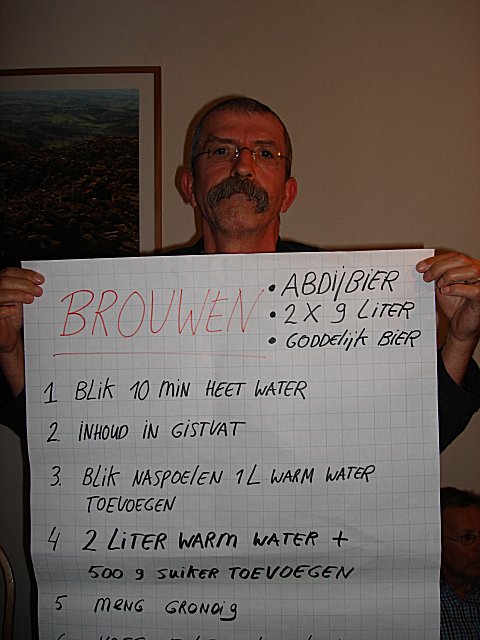 BROUWEN
• ABDIJBIER
• 2 X 9 LITER
• GODDELIJK BIER
1 BLIK 10 MIN HEET WATER
2. INHOUD IN GISTVAT
3. BLIK NASPOELEN 1L WARM WATER
TOEVOEGEN
4 2 LITER WARM WATER +
500 g SUIKER TOEVOEGEN
5 MENG GRONDIG